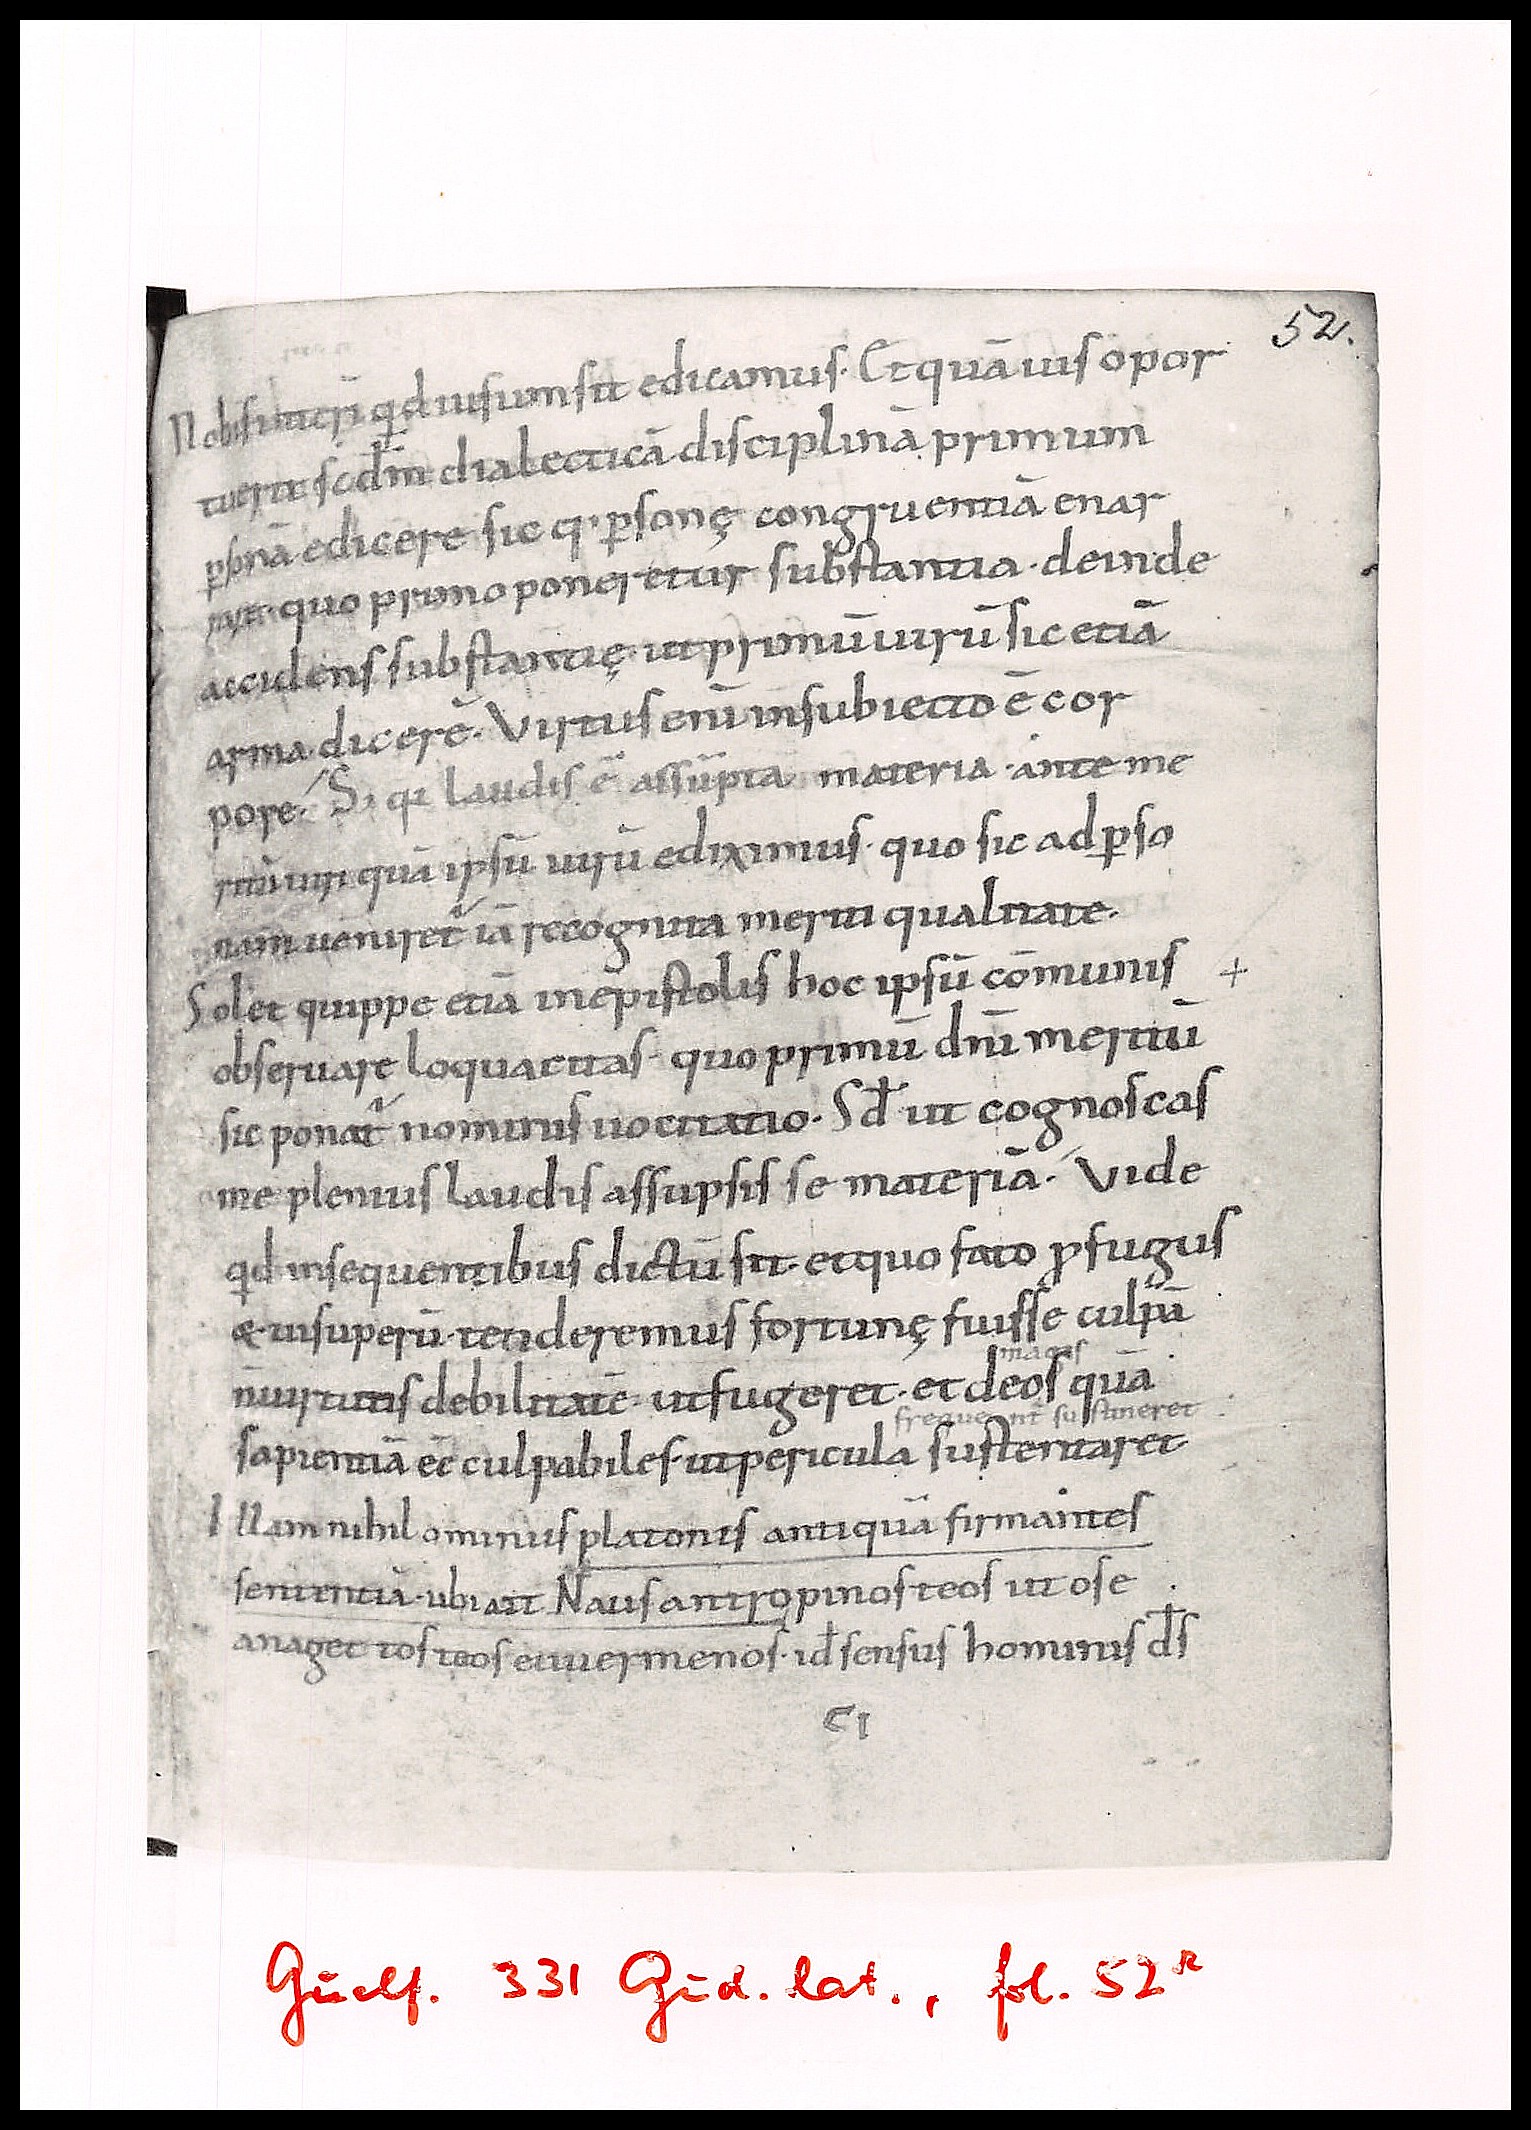 52.
Nobis uiceri qđ uisum sit edicamus. Et quāuis opor
tuerit scđm dialecticā disciplinā primum
psonā edicere sic q; psonę congruentiā enar
rare. quo primo poneretur substantia. deinde
accidens substantię. ut primū uirū sic etiā
arma dicerē. Virtus enī in subiecto ē cor
pore. S; qa laudis ē assūpta materia. ante me
ritū uiri quā ipsū uirū ediximus. quo sic ad pso
nam ueniret iā recognita meriti qualitate.
Solet quippe etiā in epistolis hoc ipsū cōmunis +
obseruare loquacitas. quo primū dnī meritū
sic ponat nominis uocitatio. Sđ ut cognoscas
me plenius laudis assupsisse materiā. Vide
qđ in sequentibus dictū sit. et quo fato pfugus
& ui superū. tenderemus fortunę fuisse culpā
n̄ uirtutis debilitatē. ut fugeret. et deos quā
magis
sapientiā eē culpabiles. ut pericula sustentaret
sustineret
Illam nihilominus platonis antiquā firmantes
sententiā. ubi ait Naus antropinos teos ut ose
anaget tos teos euuermenos. id sensus hominis ds
Guelf. 331 Gud. lat., fol. 52r